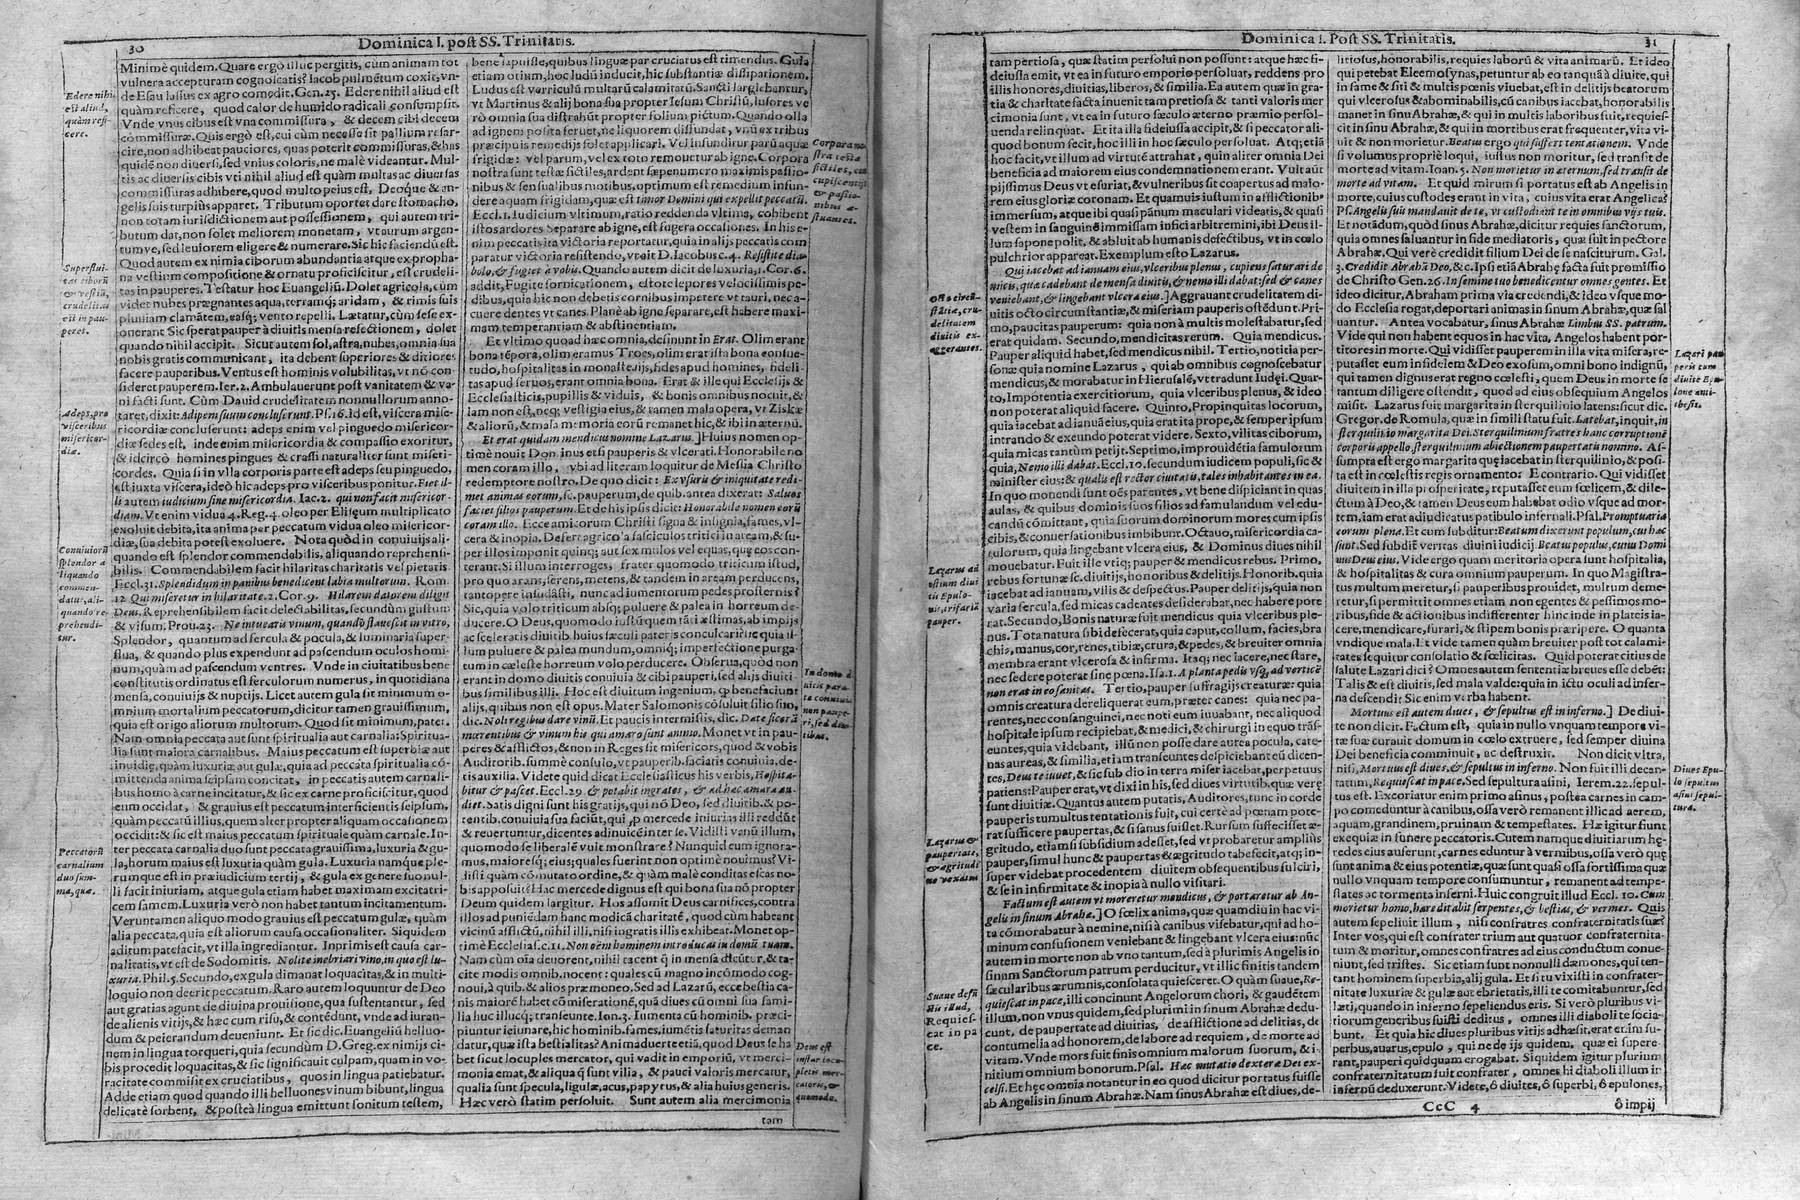 30
Dominica I. post SS. Trinitatis.
Minimè quidem. Quare ergò illuc pergitis, cùm animam tot
vulnera accepturam cognoscatis? Iacob pulmẽtum coxit, vn-
de Esau lassus ex agro comedit. Gen. 25. Edere nihil aliud est
quàm reficere, quod calor de humido radicali consumpsit.
Vnde vnus cibus est vna commissura, & decem cibi decem
cõmissuræ. Quis ergò est, cui cùm necesse sit pallium resar-
cire, non adhibeat pauciores, quas poterit commissuras, & has
quidẽ non diuersi, sed vnius coloris, ne malè videantur. Mul-
tis ac diuersis cibis vti nihil aliud est quàm multas ac diuersas
commissuras adhibere, quod multo peius est, Deoq́ue & an-
gelis suis turpius apparet. Tributum oportet dare stomacho,
non totam iurisdictionem aut possessionem, qui autem tri-
butum dat, non solet meliorem monetam, vt aurum argen-
tumve, sed leuiorem eligere & numerare. Sic hic faciendũ est.
Quod autem ex nimia ciborum abundantia atque ex propha-
na vestium compositione & ornatu proficiscitur, est crudeli-
tas in pauperes. Testatur hoc Euangeliũ. Dolet agricola, cùm
videt nubes prægnantes aqua, terramq́; aridam, & rimis suis
pluuiam clamãtem, easq́; vento repelli. Lætatur, cùm sese ex-
onerant. Sic sperat pauper à diuitis mensa refectionem, dolet
quando nihil accipit. Sicut autem sol, astra, nubes, omnia sua
nobis gratis communicant, ita debent superiores & ditiores
facere pauperibus. Ventus est hominis volubilitas, vt nõ con-
sideret pauperem. Ier. 2. Ambulauerunt post vanitatem & va-
ni facti sunt. Cùm Dauid crudelitatem nonnullorum anno-
taret, dixit: Adipem suum concluserunt. Ps. 16. id est, viscera mise-
ricordiæ concluserunt: adeps enim vel pinguedo misericor-
diæ sedes est, inde enim misericordia & compassio exoritur,
& idcircò homines pingues & crassi naturaliter sunt miseri-
cordes. Quia si in vlla corporis parte est adeps seu pinguedo,
est iuxta viscera, ideò hic adeps pro visceribus ponitur. Fiet il-
li autem iudicium sine misericordia. Iac. 2. qui non facit misericor-
diam. Vt enim vidua 4. Reg. 4. oleo per Eliseum multiplicato
exoluit debita, ita anima per peccatum vidua oleo misericor-
diæ, sua debita potest exoluere. Nota quòd in conuiuijs ali-
quando est splendor commendabilis, aliquando reprehensi-
bilis. Commendabilem facit hilaritas charitatis vel pietatis
Eccl. 31. Splendidum in panibus benedicent labia multorum. Rom.
12 Qui miseretur in hilaritate. 2. Cor. 9. Hilarem datorem diligit
Deus. Reprehensibilem facit delectabilitas, secundùm gustum
& visum. Prou. 23. Ne intuearis vinum, quando flauescit in vitro,
Splendor, quantum ad fercula & pocula, & luminaria super-
flua, & quando plus expendunt ad pascendum oculos homi-
num, quàm ad pascendum ventres. Vnde in ciuitatibus bene
constitutis ordinatus est ferculorum numerus, in quotidiana
mensa, conuiuijs & nuptijs. Licet autem gula sit minimum o-
mnium mortalium peccatorum, dicitur tamen grauissimum,
quia est origo aliorum multorum. Quod sit minimum, patet.
Nam omnia peccata aut sunt spiritualia aut carnalia: Spiritua-
lia sunt maiora carnalibus. Maius peccatum est superbiæ aut
inuidię, quàm luxuriæ aut gulæ, quia ad peccata spiritualia cõ-
mittenda anima seipsam concitat, in peccatis autem carnali-
bus homo à carne incitatur, & sic ex carne proficiscitur, quod
eum occidat, & grauius est peccatum interficientis seipsum,
quàm peccatũ illius, quem alter propter aliquam occasionem
occidit: & sic est maius peccatum spirituale quàm carnale. In-
ter peccata carnalia duo sunt peccata grauissima, luxuria & gu-
la, horum maius est luxuria quàm gula. Luxuria namque ple-
rumque est in præiudicium tertij, & gula ex genere suo nul-
li facit iniuriam, atque gula etiam habet maximam excitatri-
cem famem. Luxuria verò non habet tantum incitamentum.
Veruntamen aliquo modo grauius est peccatum gulæ, quàm
alia peccata, quia est aliorum causa occasionaliter. Siquidem
aditum patefacit, vt illa ingrediantur. Inprimis est causa car-
nalitatis, vt est de Sodomitis. Nolite inebriari vino, in quo est lu-
xuria. Phil. 5. Secundo, ex gula dimanat loquacitas, & in multi-
loquio non deerit peccatum. Raro autem loquuntur de Deo
aut gratias agunt de diuina prouisione, qua sustentantur, sed
de alienis vitijs, & hæc cum risu, & contẽdunt, vnde ad iuran-
dum & peierandum deueniunt. Et sic dic. Euangeliũ helluo-
nem in lingua torqueri, quia secundùm D. Greg. ex nimijs ci-
bis procedit loquacitas, & sic significauit culpam, quam in vo-
racitate commisit ex cruciatibus, quos in lingua patiebatur.
Adde etiam quod quando illi helluones vinum bibunt, lingua
delicatè sorbent, & posteà lingua emittunt sonitum testem,
Edere nihil
est aliud,
quàm refi-
cere.
Superflui-
tas ciborũ
& vestiũ,
crudelitas
est in pau-
peres.
Adeps, pro
visceribus
misericor-
diæ.
Conuiuiorũ
splendor a
liquando
commen-
datur, ali-
quando re-
prehendi-
tur.
Peccatorũ
carnalium
duo sum-
ma, quæ.
bene sapuisse, quibus linguæ par cruciatus est timendus. Gula
etiam otium, hoc ludũ inducit, hic substantiæ dissipationem.
Ludus est verriculũ multarũ calamitatũ. Sancti largiebantur,
vt Martinus & alij bona sua propter Iesum Christũ, lusores ve
rò omnia sua distrahũt propter folium pictum. Quando olla
ad ignem posita feruet, ne liquorem diffundat, vnũ ex tribus
præcipuis remedijs solet applicari. Vel infunditur parũ aquæ
frigidæ: vel parum, vel ex toto remouetur ab igne. Corpora
nostra sunt testæ fictiles, ardent sæpenumero maximis passio-
nibus & sensualibus motibus, optimum est remedium infun-
dere aquam frigidam, quæ est timor Domini qui expellit peccatũ.
Eccl. 1. Iudicium vltimum, ratio reddenda vltima, cohibent
istos ardores Separare ab igne, est fugera occasiones. In his e-
nim peccatis ita victoria reportatur, quia in alijs peccatis com
paratur victoria resistendo, vt ait D. Iacobus c. 4. Resistite dia-
bolo, & fugiet à vobis. Quando autem dicit de luxuria, 1. Cor. 6.
addit, Fugite fornicationem, estote lepores velocissimis pe-
dibus, quia hic non debetis cornibus impetere vt tauri, neca-
cuere dentes vt canes. Planè ab igne separare, est habere maxi-
mam temperantiam & abstinentiam.
Et vltimo quod hæc omnia, desinunt in Erat. Olim erant
bona tẽpora, olim eramus Troes, olim erat ista bona consue-
tudo, hospitalitas in monasterijs, fides apud homines, fideli-
tas apud seruos, erant omnia bona. Erat & ille qui Ecclesijs &
Ecclesiasticis, pupillis & viduis, & bonis omnibus nocuit, &
iam non est, neq́; vestigia eius, & tamen mala opera, vt Ziskæ
& aliorũ, & mala memoria eorũ remanet hic, & ibi in æternũ.
Et erat quidam mendicus nomine Lazarus.] Huius nomen op-
timè nouit Dominus etsi pauperis & vlcerati. Honorabile no
men coram illo, vbi ad literam loquitur de Messia Christo
redemptore nostro. De quo dicit: Ex vsuris & iniquitate redi-
met animas eorum, sc. pauperum, de quib. antea dixerat: Saluos
faciet filios pauperum. Et de his ipsis dicit: Honorabile nomen eorũ
coram illo. Ecce amicorum Christi signa & insignia, fames, vl-
cera & inopia. Defert agricola fasciculos tritici in aream, & su-
per illos imponit quinq; aut sex mulos vel equas, quę eos con-
terant. Si illum interroges, frater quomodo triticum istud,
pro quo aras, serens, metens, & tandem in aream perducens,
tantopere insudasti, nunc ad iumentorum pedes prosternis?
Sic, quia volo triticum absq́; puluere & palea in horreum de-
ducere. O Deus, quomodo iustũ quem tãti æstimas, ab impijs
ac sceleratis diuitib. huius sæculi pateris conculcari? sic quia il-
lum puluere & palea mundum, omniq́; imperfectione purga-
tum in cæleste horreum volo perducere. Obserua, quòd non
erant in domo diuitis conuiuia & cibi pauperi, sed alijs diuiti-
bus similibus illi. Hoc est diuitum ingenium, q̃ benefaciunt
alijs, quibus non est opus. Mater Salomonis cõsoluit filio suo,
dic. Noli regibus dare vinũ. Et paucis intermissis, dic. Date siceram
mœrentibus & vinum his qui amaro sunt animo. Monet vt in pau-
peres & afflictos, & non in Reges sit misericors, quod & vobis
Auditorib. summè consulo, vt pauperib. faciatis conuiuia, de-
tis auxilia. Videte quid dicat Ecclesiasticus his verbis, Hospita-
bitur & pascet. Eccl. 29 & potabit ingratos, & ad hæc amara au-
diet. Satis digni sunt his gratijs, qui nõ Deo, sed diuitib. & po-
tentib. conuiuia sua faciũt, qui ꝓ mercede iniurias illi reddũt
& reuertuntur, dicentes adinuicẽ inter se. Vidisti vanũ illum,
quomodo se liberalẽ vult monstrare? Nunquid eum ignora-
mus, maioresq́; eius; quales fuerint non optimè nouimus? Vi-
disti quàm cõmutato ordine, & quàm malè conditas escas no-
bis apposuit? Hac mercede dignus est qui bona sua nõ propter
Deum quidem largitur. Hos assumit Deus carnifices, contra
illos ad puniẽdam hanc modicã charitatẽ, quod cùm habeant
vicinũ afflictũ, nihil illi, nisi ingratis illis exhibeat. Monet op-
timè Ecclesias. c. 11. Non oẽm hominem introducas in domũ tuam.
Nam cùm oĩa deuorent, nihil tacent q̃ in mensa dicũtur, & ta-
cite modis omnib. nocent: quales cũ magno incõmodo cog-
noui, à quib. & alios præmoneo. Sed ad Lazarũ, ecce bestia ca-
nis maiorẽ habet cõmiserationẽ, quã diues cũ omni sua fami-
lia huc illucq́; transeunte. Ion. 3. Iumenta cũ hominib. præci-
piuntur ieiunare, hic hominib. fames, iumẽtis saturitas deman
datur, quæ ista bestialitas? Animaduerte etiã, quod Deus se ha
bet sicut locuples mercator, qui vadit in emporiũ, vt merci-
monia emat, & aliqua q̃ sunt vilia, & pauci valoris mercatur,
qualia sunt specula, ligulæ, acus, papyrus, & alia huius generis.
Hæc verò statim persoluit. Sunt autem alia mercimonia
tam
Corpora no-
stra testæ
fictiles, con
cupiscentijs
& passio-
nibus æ-
stuantes.
In domo di
uitis para-
ta conuiuia
non paupe-
ri, sed diui-
tibus.
Deus est
instar locu
pletis mer-
catoris, &
quomodo.
Dominica I. Post SS. Trinitatis.
31
tam pertiosa, quæ statim persolui non possunt: atque hæc fi-
deiussa emit, vt ea in futuro emporio persoluat, reddens pro
illis honores, diuitias, liberos, & similia. Ea autem quæ in gra-
tia & charitate facta inuenit tam pretiosa & tanti valoris mer
cimonia sunt, vt ea in futuro sæculo æterno præmio persol-
uenda relinquat. Et ita illa fideiussa accipit, & si peccator ali-
quod bonum fecit, hoc illi in hoc sæculo persoluat. Atq́; etiã
hoc facit, vt illum ad virtutẽ attrahat, quin aliter omnia Dei
beneficia ad maiorem eius condemnationem erant. Vult aũt
pijssimus Deus vt esuriat, & vulneribus sit coapertus ad maio-
rem eius gloriæ coronam. Et quamuis iustum in afflictionib⁹
immersum, atque ibi quasi pãnum maculari videatis, & quasi
vestem in sanguinẽ immissam infici arbitremini, ibi Deus il-
lum sapone polit, & abluit ab humanis defectibus, vt in cœlo
pulchrior appareat. Exemplum esto Lazarus.
Qui iacebat ad ianuam eius, vlceribus plenus, cupiens saturari de
micis, quæ cadebant de mensa diuitis, & nemo illi dabat: sed & canes
veniebant, & lingebant vlcera eius.] Aggrauant crudelitatem di-
uitis octo circumstantiæ, & miseriam pauperis ostẽdunt. Pri-
mo, paucitas pauperum: quia non à multis molestabatur, sed
erat quidam. Secundo, mendicitas rerum. Quia mendicus.
Pauper aliquid habet, sed mendicus nihil. Tertio, notitia per-
sonæ quia nomine Lazarus, quia ab omnibus cognoscebatur
mendicus, & morabatur in Hierusalẽ, vt tradunt Iudęi. Quar-
to, Impotentia exercitiorum, quia vlceribus plenus, & ideo
non poterat aliquid facere. Quinto, Propinquitas locorum,
quia iacebat ad ianuã eius, quia erat ita prope, & semper ipsum
intrando & exeundo poterat videre. Sexto, vilitas ciborum,
quia micas tantùm petijt. Septimo, improuidẽtia famulorum
quia, Nemo illi dabat. Eccl. 10. secundum iudicem populi, sic &
minister eius: & qualis est rector ciuitatis, tales inhabitantes in ea.
In quo monendi sunt oẽs parentes, vt bene dispiciant in quas
aulas, & quibus dominis suos filios ad famulandum vel edu-
candũ cõmittant, quia suorum dominorum mores cum ipsis
cibis, & conuersationibus imbibunt. Octauo, misericordia ca-
tulorum, quia lingebant vlcera eius, & Dominus diues nihil
mouebatur. Fuit ille vtiq́; pauper & mendicus rebus. Primo,
rebus fortunæ sc. diuitijs, honoribus & delitijs. Honorib. quia
iacebat ad ianuam, vilis & despectus. Pauper delitijs, quia non
varia fercula, sed micas cadentes desiderabat, nec habere pote
rat. Secundo, Bonis naturæ fuit mendicus quia vlceribus ple-
nus. Tota natura sibi defecerat, quia caput, collum, facies, bra
chia, manus, cor, renes, tibiæ, crura, & pedes, & breuiter omnia
membra erant vlcerosa & infirma. Itaq́; nec iacere, nec stare,
nec sedere poterat sine pœna. Isa. 1. A planta pedis vsq́, ad verticẽ
non erat in eo sanitas. Tertio, pauper suffragijs creaturæ: quia
omnis creatura dereliquerat eum, præter canes: quia nec pa-
rentes, nec consanguinei, nec noti eum iuuabant, nec aliquod
hospitale ipsum recipiebat, & medici, & chirurgi in equo trãs-
euntes, quia videbant, illũ non posse dare aurea pocula, cate-
nas aureas, & similia, etiam transeuntes despiciebant eũ dicen-
tes, Deus te iuuet, & sic sub dio in terra miser iacebat, perpetuus
patiens: Pauper erat, vt dixi in his, sed diues virtutib. quæ verę
sunt diuitiæ. Quantus autem putatis, Auditores, tunc in corde
pauperis tumultus tentationis fuit, cui certe ad pœnam pote-
rat sufficere paupertas, & si sanus fuisset. Rursum suffecisset æ-
gritudo, etiam si subsidium adesset, sed vt probaretur ampliùs
pauper, simul hunc & paupertas & ægritudo tabefecit, atq; in-
super videbat procedentem diuitem obsequentibus fulciri,
& se in infirmitate & inopia à nullo visitari.
Factum est autem vt moreretur mendicus, & portaretur ab An-
gelis in sinum Abrahæ.] O fœlix anima, quæ quamdiu in hac vi-
ta cõmorabatur à nemine, nisi à canibus visebatur, qui ad ho-
minum confusionem veniebant & lingebant vlcera eius: nũc
autem in morte non ab vno tantum, sed à plurimis Angelis in
sinum Sanctorum patrum perducitur, vt illic finitis tandem
sæcularibus ærumnis, consolata quiesceret. O quàm suaue, Re-
quiescat in pace, illi concinunt Angelorum chori, & gaudẽtem
illum, non vnus quidem, sed plurimi in sinum Abrahæ dedu-
cunt, de paupertate ad diuitias, de afflictione ad delitias, de
contumelia ad honorem, de labore ad requiem, de morte ad
vitam. Vnde mors fuit finis omnium malorum suorum, & i-
nitium omnium bonorum. Psal. Hæc mutatio dexteræ Dei ex-
celsi. Et hęc omnia notantur in eo quod dicitur portatus fuisse
ab Angelis in sinum Abrahæ. Nam sinus Abrahæ est diues, de-
Octo circũ-
stãtiæ, cru-
delitatem
diuitis ex-
aggerantes.
Lazarus ad
ostium diui
tis Epulo-
nis, trifariã
pauper.
Lazarus &
paupertate,
& ægritudi
ne vexatus
Suaue defũ
ctis illud,
Requies-
cat in pa
ce.
litiosus, honorabilis, requies laborũ & vita animarũ. Et ideo
qui petebat Eleemosynas, petuntur ab eo tanquã à diuite, qui
in fame & siti & multis pœnis viuebat, est in delitijs beatorum
qui vlcerosus & abominabilis, cũ canibus iacebat, honorabilis
manet in sinu Abrahæ, & qui in multis laboribus fuit, requies-
cit in sinu Abrahæ, & qui in mortibus erat frequenter, vita vi-
uit & non morietur. Beatus ergo qui suffert tentationem. Vnde
si volumus propriè loqui, iustus non moritur, sed transit de
morte ad vitam. Ioan. 5. Non morietur in æternum, sed transit de
morte ad vitam. Et quid mirum si portatus est ab Angelis in
morte, cuius custodes erant in vita, cuius vita erat Angelica?
Ps. Angelis suis mandauit de te, vt custodiant te in omnibus vijs tuis.
Et notãdum, quòd sinus Abrahæ, dicitur requies sanctorum,
quia omnes saluantur in fide mediatoris, quæ fuit in pectore
Abrahæ, Qui verè credidit filium Dei de se nasciturum. Gal.
3. Credidit Abrahã Deo, &c. Ipsi etiã Abrahę facta fuit promissio
de Christo Gen. 26. In semine tuo benedicentur omnes gentes. Et
ideo dicitur, Abraham prima via credendi, & ideo vsque mo-
do Ecclesia rogat, deportari animas in sinum Abrahæ, quæ sal
uantur. Antea vocabatur, sinus Abrahæ Limbus SS. patrum.
Vide qui non habent equos in hac vita, Angelos habent por-
titores in morte. Qui vidisset pauperem in illa vita misera, re-
putasset eum infidelem & Deo exosum, omni bono indignũ,
qui tamen dignus erat regno cœlesti, quem Deus in morte se
tantum diligere ostendit, quod ad eius obsequium Angelos
misit. Lazarus fuit margarita in sterquilinio latens: sicut dic.
Gregor. de Romula, quæ in simili statu fuit. Latebat, inquit, in
sterquilinio margarita Dei. Sterquilinium fratres hanc corruptionẽ
corporis appello, sterquilinium abiectionem paupertatis nomino. As-
sumpta est ergo margarita quę iacebat in sterquilinio, & posi-
ta est in cœlestis regis ornamentos Econtrario. Qui vidisset
diuitem in illa prosperitate, reputasset eum fœlicem, & dile-
ctum à Deo, & tamen Deus eum habebat odio vsque ad mor-
tem, iam erat adiudicatus patibulo infernali. Psal. Promptuaria
eorum plena. Et cum subditur: Beatum dixerunt populum, cui hæc
sunt. Sed subdit veritas diuini iudicij. Beatus populus, cuius Domi
nus Deus eius. Vide ergo quam meritoria opera sunt hospitalia,
& hospitalitas & cura omnium pauperum. In quo Magistra-
tus multum meretur, si pauperibus prouidet, multum deme-
retur, si permittit omnes etiam non egentes & pessimos mo-
ribus, fide & actionibus indifferenter hinc inde in plateis ia-
cere, mendicare, furari, & stipem bonis præripere. O quanta
vndique mala. Et vide tamen quàm breuiter post tot calami-
tates sequitur consolatio & fœlicitas. Quid poterat citius de
salute Lazari dici? Omnes autem sententiæ breues esse debẽt:
Talis & est diuitis, sed mala valde: quia in ictu oculi ad infer-
na descendit: Sic enim verba habent.
Mortuus est autem diues, & sepultus est in inferno.] De diui-
te non dicit. Factum est, quia in nullo vnquam tempore vi-
tæ suæ curauit domum in cœlo extruere, sed semper diuina
Dei beneficia comminuit, ac destruxit. Non dicit vltra,
nisi, Mortuus est diues, & sepultus in inferno. Non fuit illi decan-
tatum, Requiescat in pace. Sed sepultura asini, Ierem. 22. sepul-
tus est. Excoriatur enim primo asinus, postea carnes in cam-
po comeduntur à canibus, ossa verò remanent illic ad aerem,
aquam, grandinem, pruinam & tempestates. Hæ igitur sunt
exequiæ in funere peccatoris. Cutem namque diuitiarum hę-
redes eius auferunt, carnes eduntur à vermibus, ossa verò quę
sunt anima & eius potentiæ, quæ sunt quasi ossa fortissima quæ
nullo vnquam tempore consumuntur, remanent ad tempe-
states ac tormenta inferni. Huic congruit illud Eccl. 10. Cum
morietur homo, hæreditabit serpentes, & bestias, & vermes. Quis
autem sepeliuit illum, nisi confratres confraternitatis suæ?
Inter vos, qui est confrater trium aut quatuor confraternita-
tum & moritur, omnes confratres ad eius conductum conue-
niunt, sed tristes. Sic etiam sunt nonnulli dæmones, qui ten-
tant hominem superbia, alij gula. Et si tu vixisti in confrater-
nitate luxuriæ & gulæ aut ebrietatis, illi te comitabuntur, sed
læti, quando in inferno sepeliendus eris. Si verò pluribus vi-
tiorum generibus fuisti deditus, omnes illi diaboli te socia-
bunt. Et quia hic diues pluribus vitijs adhæsit, erat enim su-
perbus, auarus, epulo, qui ne de ijs quidem, quæ ei supere-
rant, pauperi quidquam erogabat. Siquidem igitur plurium
confraternitatum fuit confrater, omnes hi diaboli illum in
infernũ deduxerunt. Videte, ô diuites, ô superbi, ô epulones,
CcC 4
ô impij
Lazari pau
peris cum
diuite Epu
lone anti-
thesis.
Diues Epu-
lo sepultus
asini sepul-
tura.